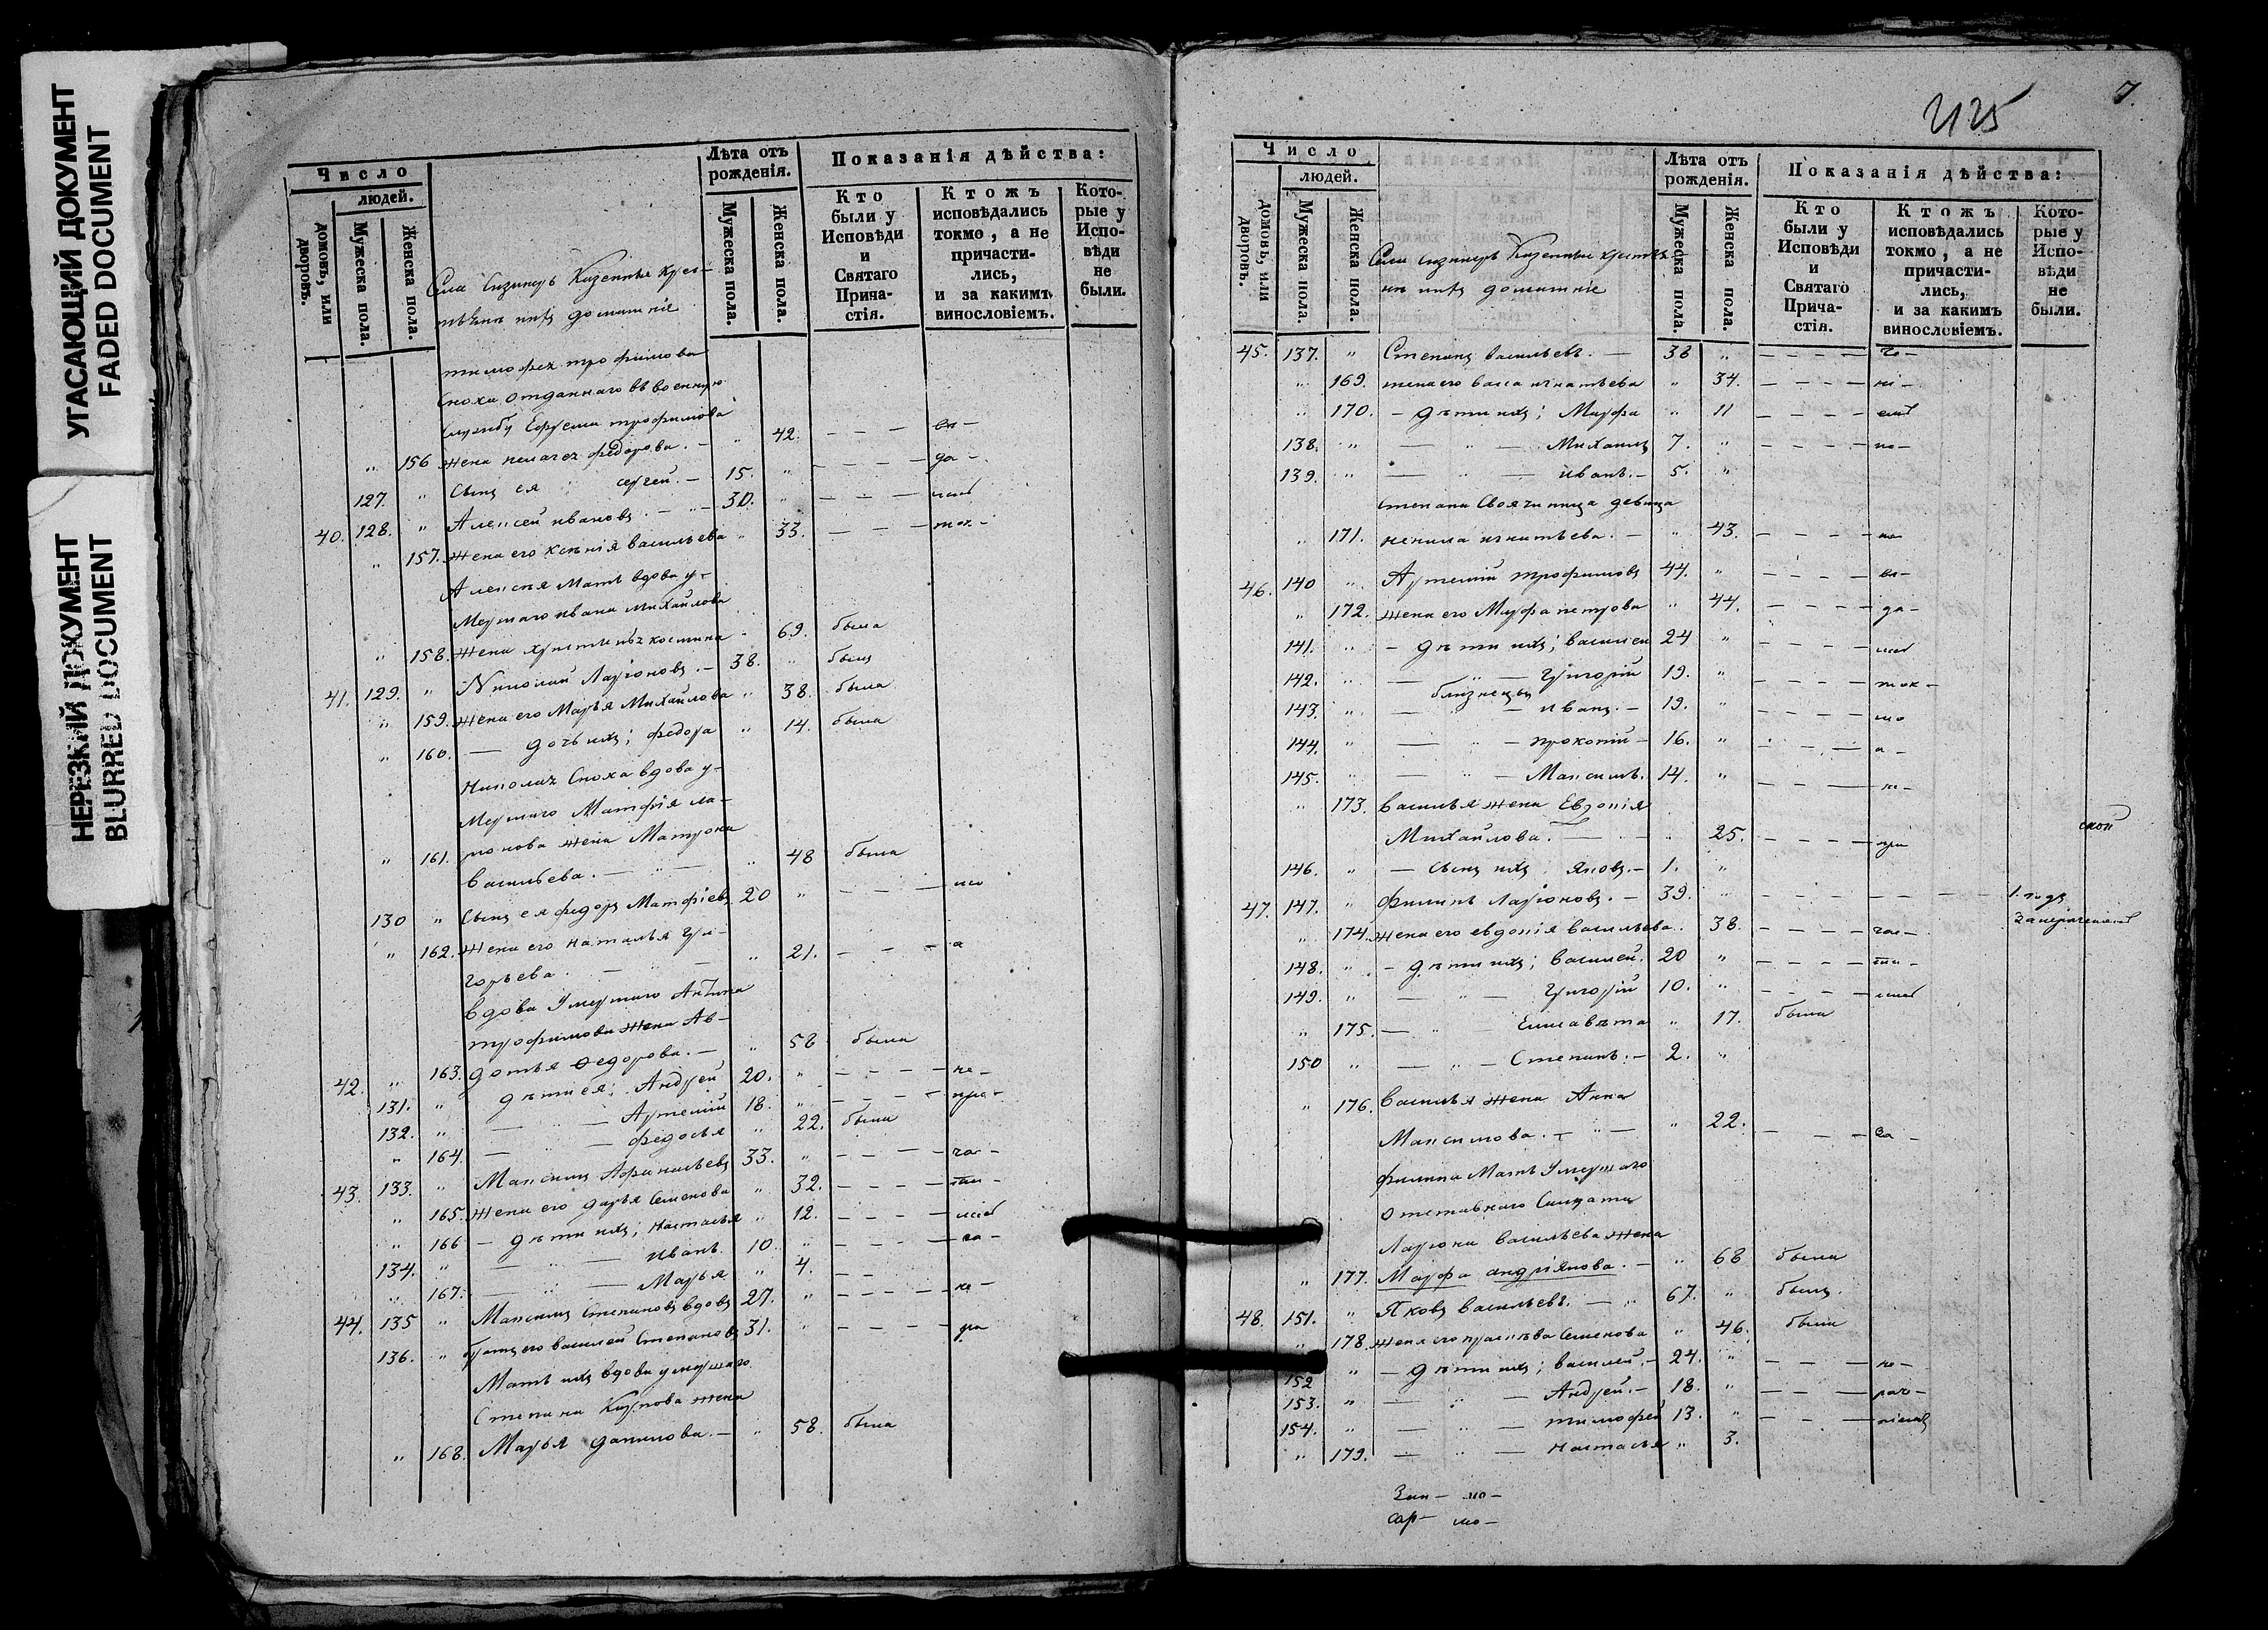 УГАСАЮЩИЙ ДОКУМЕНТ
FADED DOCUMENT
НЕРЕЗКИЙ ДОКУМЕНТ
BLURRED DOCUMENT
Число
людей.
домовъ, или дворовъ.
Мужеска пола.
Женска пола.
Лѣта отъ рожденія.
Мужеска пола.
Женска пола.
Показанія дѣйства:
Кто были у Исповѣди и Святаго Прича-стія.
Ктожъ исповѣдались токмо, а не причасти-лись, и за какимъ винословіемъ.
Кото-рые у Испо-вѣди не были.
домашніе
тимофея трофимова
Сноха отданнаго въ военную
службу Ефрема трофимова
" 156 жена пелагея федорова. — " 42.
127. " Сынъ ея сергей. — 15. "
40. 128. " Алексей ивановъ. — 30. "
" 157. жена его ксенія васильева " 33.
Алексея Мать вдова у-
Мершаго ивана михайлова
" 158. жена костина " 69. была
41. 129. " Николай Ларіоновъ. — 38. " былъ
" 159. жена его Марья Михайлова " 38. была
" 160. — дочь ихъ; федора " 14. была
Николая Сноха вдова у-
Мершаго Матфія ла-
" 161. ріонова жена Матрона
васильева. — " — " 48 была
130 " Сынъ ея федоръ Матфіевъ 20 "
" 162. жена его наталья Гри-
горьева. — " — " 21.
вдова Умершаго Антипа
трофимова жена Ав-
42. " 163. дотья Ѳедорова. — " 58 была
131. " дѣти ея; Андрей 20. "
132. " — " — Артемій 18. "
" 164. — " — федосья " 22. была
43. 133. " Максимъ Афанасьевъ 33. "
" 165. жена его дарья Семенова " 32.
" 166 — дѣти ихъ; настасья " 12.
134. " — " — иванъ 10. "
" 167. — " — Марья " 4.
44. 135 " Максимъ Степановъ вдовъ 27. "
136. " братъ его василей Степановъ 31. "
Мать ихъ вдова умершаго
Степана Карпова жена
" 168. Марья данилова. — " 58. была
2125
7.
Число
людей.
домовъ, или дворовъ.
Мужеска пола.
Женска пола.
Лѣта отъ рожденія.
Мужеска пола.
Женска пола.
Показанія дѣйства:
Кто были у Исповѣди и Святаго Прича-стія.
Ктожъ исповѣдались токмо, а не причасти-лись, и за какимъ винословіемъ.
Кото-рые у Испо-вѣди не были.
домашніе
45. 137. " Степанъ васильевъ. — 38 "
" 169. жена его васса игнатьева " 34.
" 170. — дѣти ихъ; Марфа " 11
138. " — " — Михаилъ 7. "
139. " — " — иванъ. — 5. "
Степана Своячиница девица
" 171. ненила игнатьева. — " 43.
46. 140 " Артемій трофимовъ 44. "
" 172. жена его Марфа петрова " 44.
141. " — дѣти ихъ; василей 24 "
142. " — " — Григорій 19. "
близнецы
143. " — " — иванъ. — 19. "
144. " — " — прокопій — 16. "
145. " — " — Максимъ. 14. "
" 173. василья жена Евдокія
Михайлова. — " 25.
146. " — сынъ ихъ яковъ. — 1. "
47. 147. " филипъ Ларіоновъ. — 39. "
" 174. жена его евдокія васильева. 38.
148. " — дѣти ихъ; василей. 20 "
149. " — " — Григорій 10. "
" 175. — " — Елисавета " 17. была
150 " — " — Степанъ. — 2. "
" 176. василья жена Анна
Максимова. — " — " 22.
филипа Мать Умершаго
отставнаго Салдата
Ларіона васильева жена
" 177. Марфа андріянова. — " 68 была
48. 151. " Яковъ васильевъ. — 67. " былъ.
" 178. жена его Семенова " 46. была
152 " — дѣти ихъ; василей. — 24. "
153. " — " — Андрей. — 18. "
154. " — " — тимофей 13. "
" 179. — " — настасья " 3.